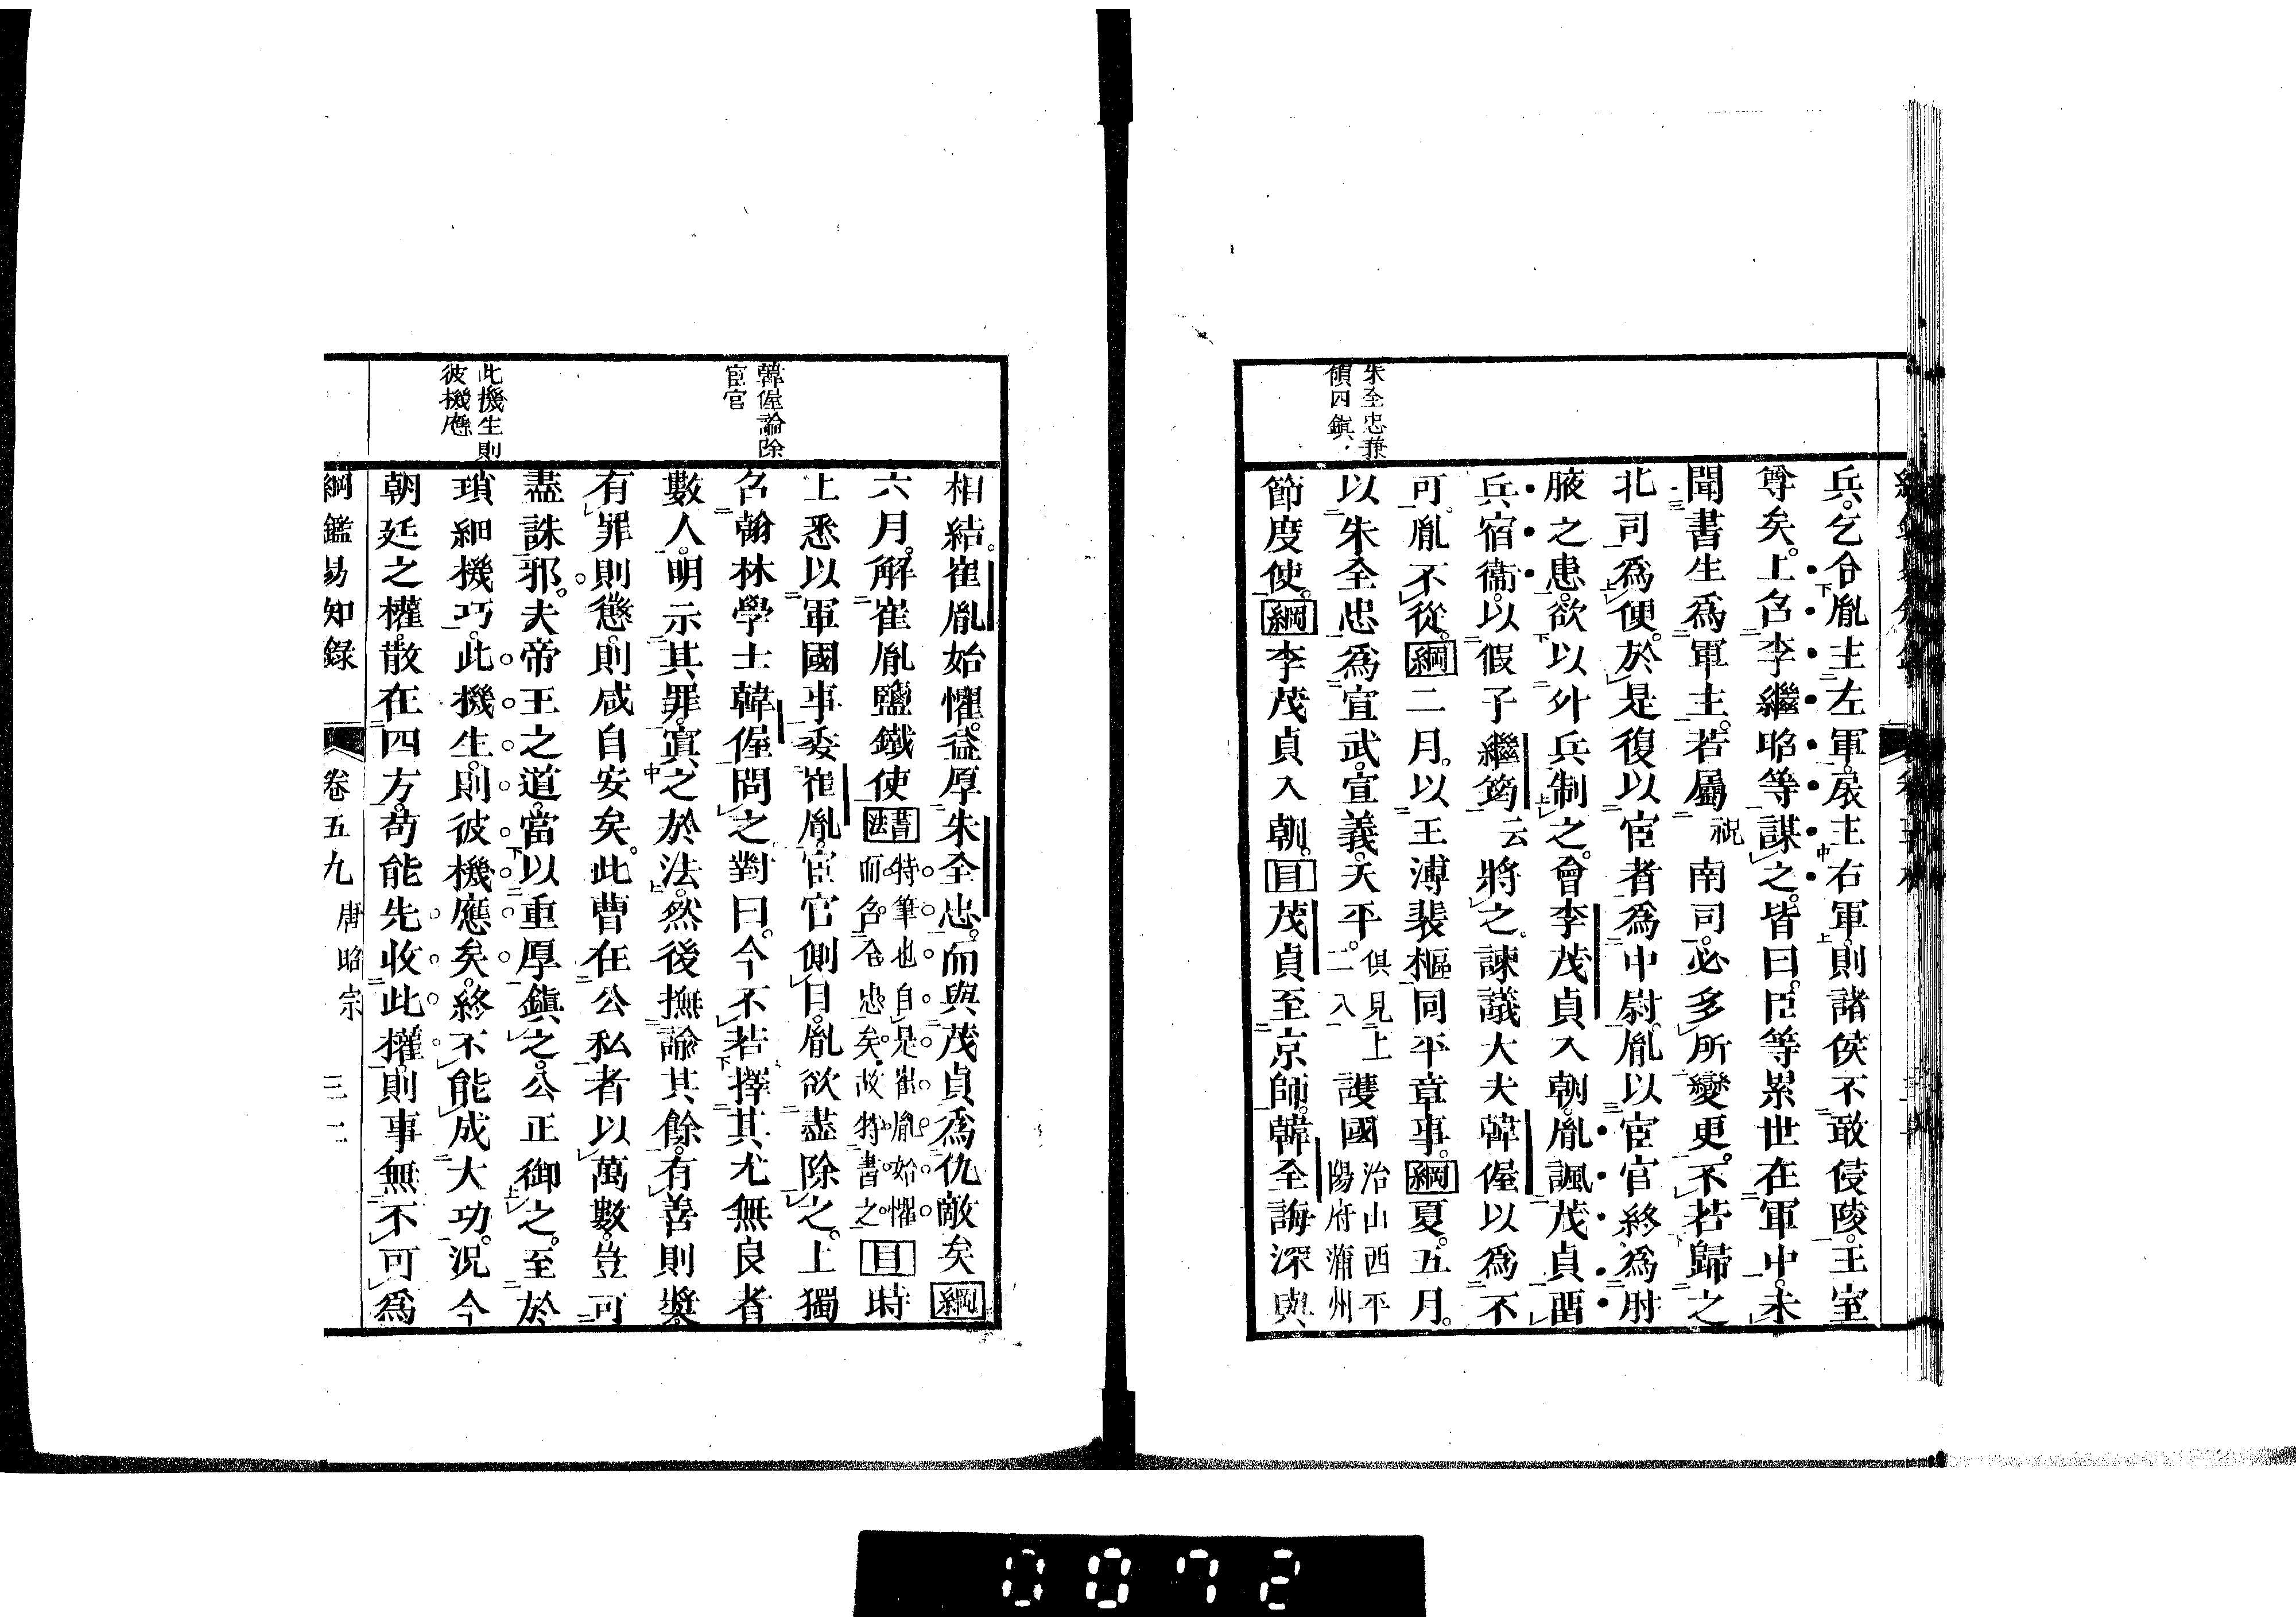 兵。乞令胤主左軍。扆主右軍。則諸侯不敢侵陵。王室
尊矣。上召李繼昭等謀之。皆曰。臣等累世在軍中。未
聞書生爲軍主。若屬祝南司。必多所變更。不若歸之
北司爲便。於是復以宦者爲中尉。胤以宦官終爲肘
腋之患。欲以外兵制之。會李茂貞入朝。胤諷茂貞畱
兵宿衞。以假子繼筠云將之。諫議大夫韓偓以爲不
可。胤不從。綱二月。以王溥裴樞同平章事。綱夏。五月。
朱全忠兼
領四鎮
以朱全忠爲宣武。宣義。天平。俱見上
二入護國治山西平
陽府蒲州
節度使。綱李茂貞入朝。目茂貞至京師。韓全誨深與
相結。崔胤始懼。益厚朱全忠。而與茂貞爲仇敵矣綱
六月。解崔胤鹽鐵使書法特筆也自是崔胤始懼
而召全忠矣故特書之目時
上悉以軍國事委崔胤。宦官側目。胤欲盡除之。上獨
韓偓論除
宦官
召翰林學士韓偓問之。對曰。今不若擇其尤無良者
數人。明示其罪。寘之於法。然後撫諭其餘。有善則奬。
有罪則懲。則咸自安矣。此曹在公私者以萬數。豈可
盡誅邪。夫帝王之道。當以重厚鎭之。公正御之。至於
此機生則
彼機應
瑣細機巧。此機生。則彼機應矣。終不能成大功。況今
朝廷之權。散在四方。苟能先收此權。則事無不可爲
綱鑑易知錄 卷五九 唐昭宗 三二
0072